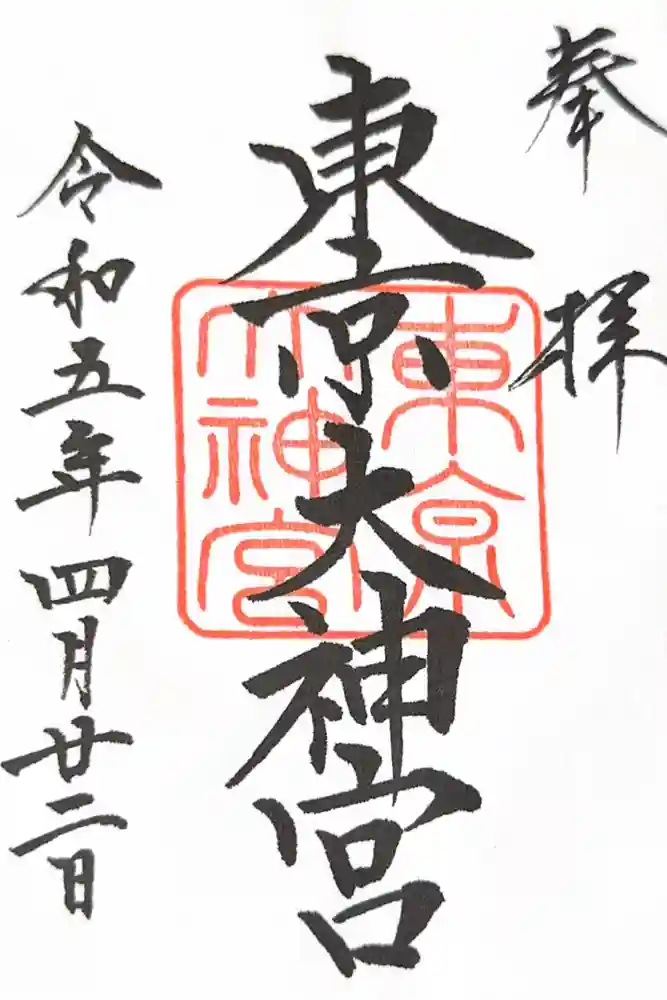 奉拝
東京大神宮
東京
大神宮
令和五年四月廿二日